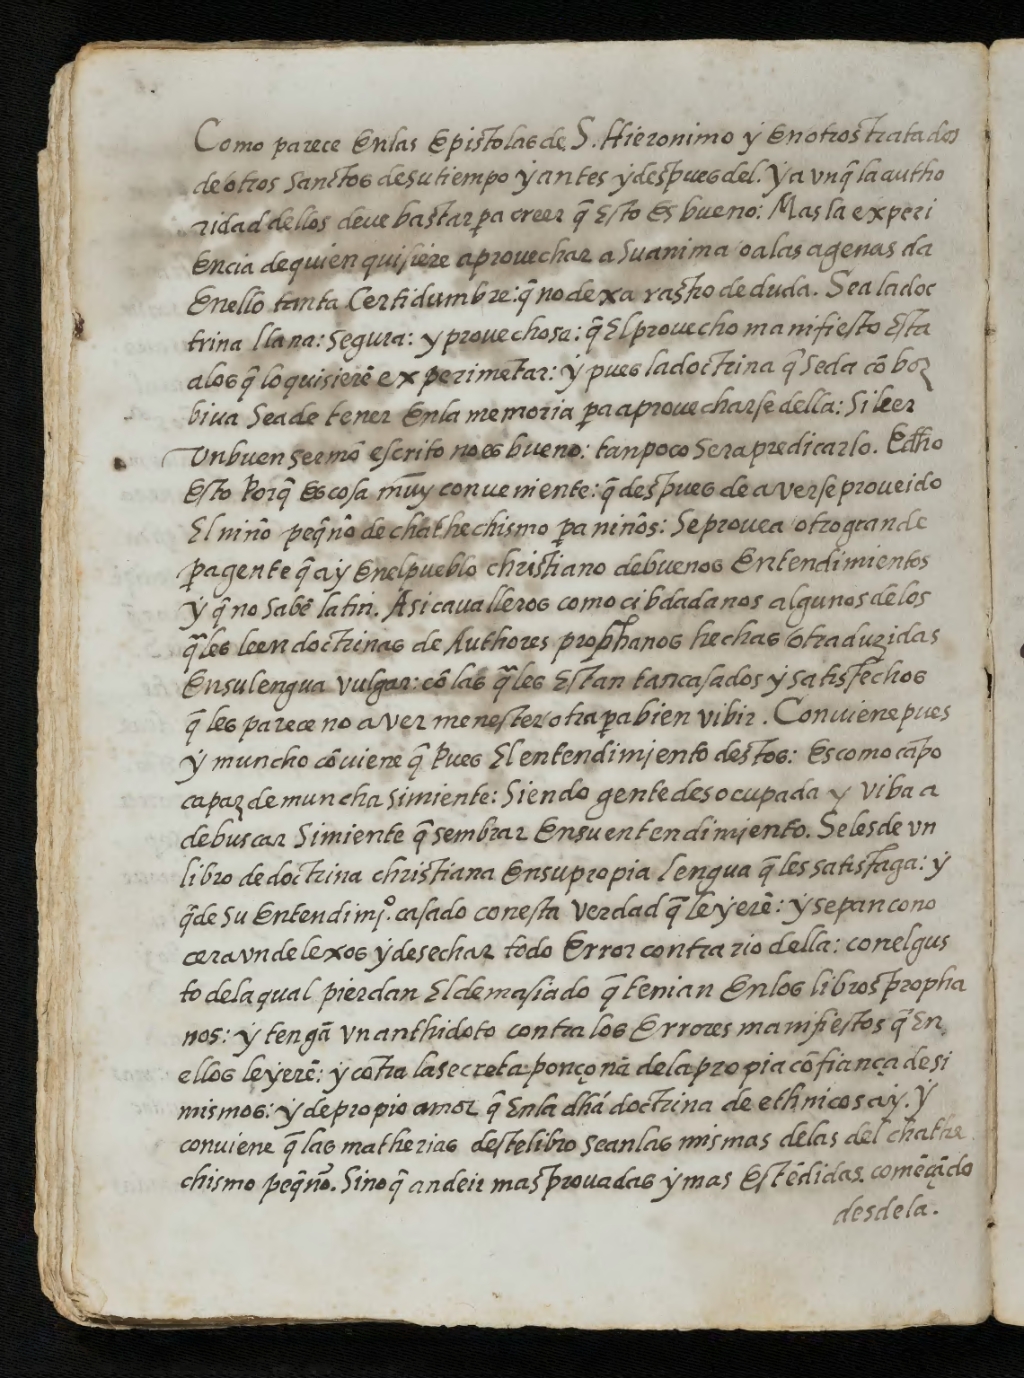 Como parece Enlas Epistolas de S. Hieronimo ý Enotros tratados
de otros Sanctos desu tiempo ý antes ý despues del. Ý a vnq̃ la autho
ridad dellos deve bastar p̲a creer q̃ Esto Es bueno: Mas la experi
Encia de quien quisiere aprouechar a Su anima o a las agenas da
Enello tanta Certidumbre: q̃ no dexa rastro de duda. Sea la doc
trina llana: Segura: y prouechosa: q̃ El prouecho manifiesto Esta
a los q̃ lo quisierẽ experimẽtar: ý pues la doctrina q̃ Se da cõ boz
biua Sea de tener Enla memoria p̲a aprouecharse della: Si leer
Vn buen sermõ escrito no es bueno: tanpoco Sera predicarlo. E dho
Esto Porq̃ Es cosa muy conueniente: q̃ despues de averse proueido
El niño peq̃ño de chathechismo p̲a niños: Se prouea otro grande
p̲a gente q̃ aý Enel pueblo christiano de buenos Entendimientos
Ý q̃ no Sabẽ latin. Asi caualleros como cibdadanos algunos de los
q̃les leen doctrinas de Authores prophanos hechas o traduzidas
Ensu lengua vulgar: cõ las q̃les Estan tan casados ý satisfechos
q̃ les parece no aver menester otra p̲a bien vibir. Conuiene pues
Ý muncho cõuiene q̃ Pues El entendimiento destos: Es como cãpo
capaz de muncha Simiente: Siendo gente desocupada y viba a
de buscar Simiente q̃ sembrar Ensu entendimiento. Se les de vn
libro de doctrina christiana Ensu propia lengua q̃ les satisfaga: ý
q̃de Su Entendimj.º casado con esta verdad q̃ leýerẽ: ý sepan cono
cer avn de lexos ý desechar todo Error contrario della: con el gus
to dela qual pierdan El demasiado q̃ tenian Enlos libros propha
nos: ý tengã vn anthidoto contra los Errores manifiestos q̃ En
ellos leýerẽ: ý cõtra la secreta ponçoña dela propia cõfiança de si
mismos: ý de propio amor q̃ Enla dhá doctrina de ethnicos aý. Ý
conuiene q̃ las matherias deste libro Sean las mismas de las del chathe
chismo peq̃ño. Sino q̃ an de ir mas prouadas ý mas Estẽdidas comẽçãdo
desde la.